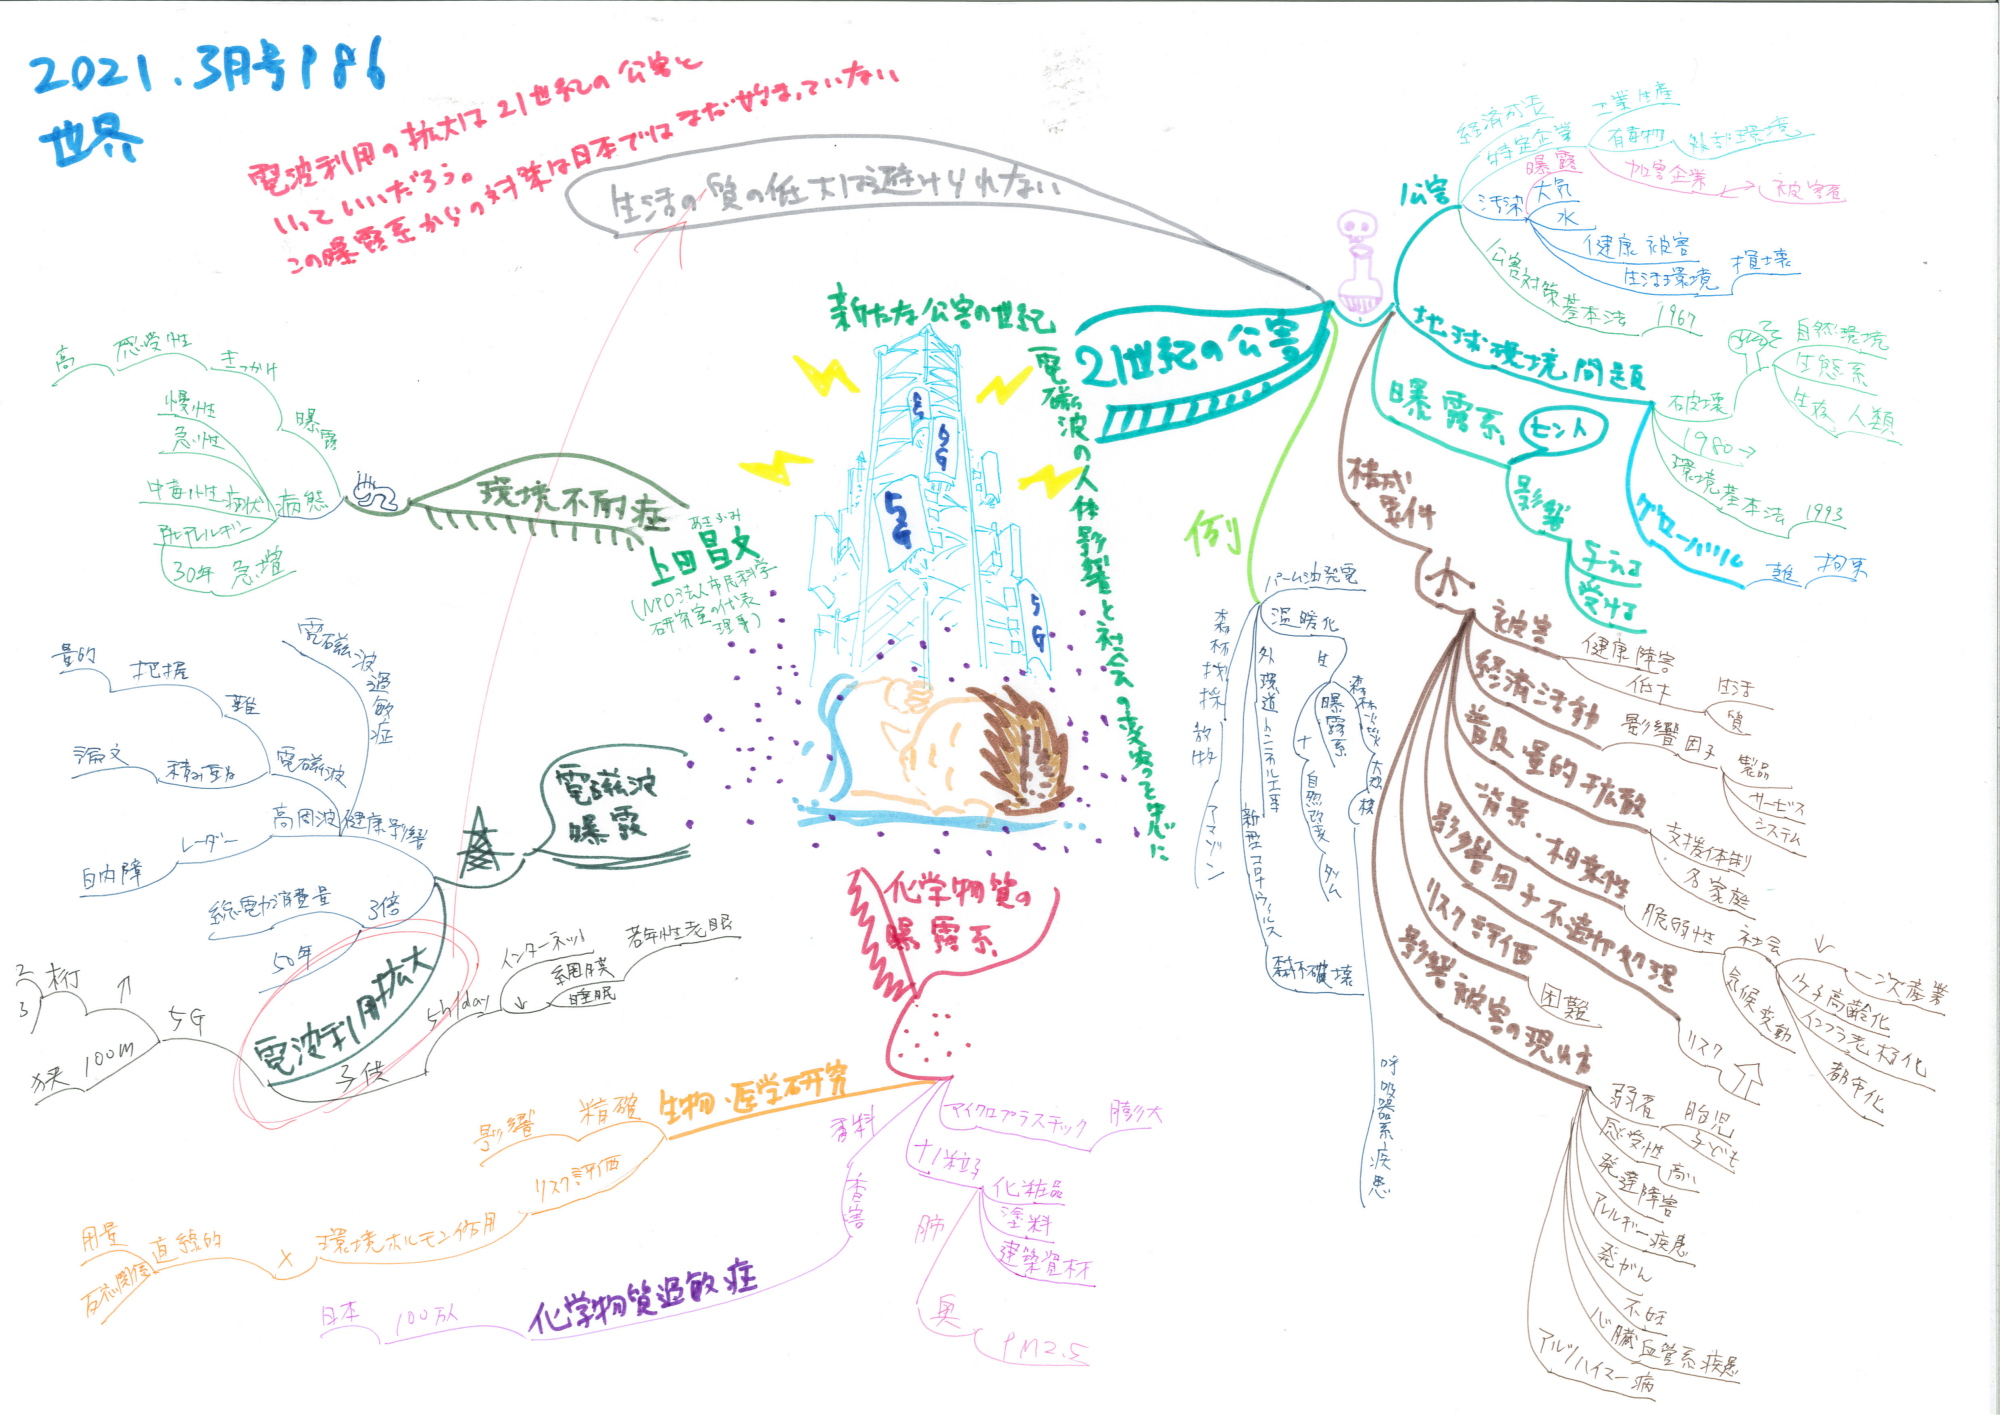 2021.3月号P86
世界
電波利用の拡大は21世紀の公害と
いっていいだろう。
この曝露系からの対策は日本ではまだ始まっていない
生活の質の低大は避けられない
新たな公害の世紀
電磁波の人体影響と社会の変容って
上田昌文
あきふみ
(NPO法人市民科学
研究室の代表
理事)
5G
5G
5G
5G
21世紀の公害
公害
経済成長
特定企業
工業生産
有毒物
外部環境
曝露
加害企業
被害者
汚染
大気
水
健康被害
生活環境
損壊
公害対策基本法
1967
地球環境問題
破壊
自然環境
生態系
生存
人類
1980→
環境基本法
1993
グローバル
難
拘束
曝露系
ヒント
影響
与える
受ける
構成
要件
被害
健康障害
低下
生活
質
経済活動
影響因子
製品
サービス
システム
普及・量的拡散
支援体制
各家庭
背景・相乗性
脆弱性
社会
一次産業
少子高齢化
インフラ老朽化
都市化
気候変動
影響因子不適切処理
リスク
リスク評価
困難
影響被害の現れ方
弱者
胎児
子ども
感受性
高い
発達障害
アレルギー疾患
発がん
不妊
心臓血管系疾患
アルツハイマー病
例
パーム油発電
温暖化
森林伐採
放牧
アマゾン
外環道トンネル工事
新型コロナウィルス
森林破壊
生
曝露系
+
自然改変
ダム
森林火災
大規模
呼吸器系疾患
環境不耐症
曝露
きっかけ
感受性
高
病態
病状
慢性
急性
中毒性
アレルギー
30年
急増
電磁波
曝露
健康影響
電磁波過敏症
電磁波
難
把握
量的
積み重ね
論文
高周波
レーダー
白内障
3倍
総電力消費量
50年
電波利用拡大
5G
↑
桁
2
3
100m
狭
子供
5h/day
インターネット
↓
網膜
睡眠
若年性老眼
化学物質の
曝露系
生物・医学研究
精確
影響
リスク評価
環境ホルモン作用
×
直線的
用量
反応関係
香料
香害
化学物質過敏症
100万人
日本
マイクロプラスチック
膨大
ナノ粒子
化粧品
塗料
建築資材
肺
奥
PM2.5